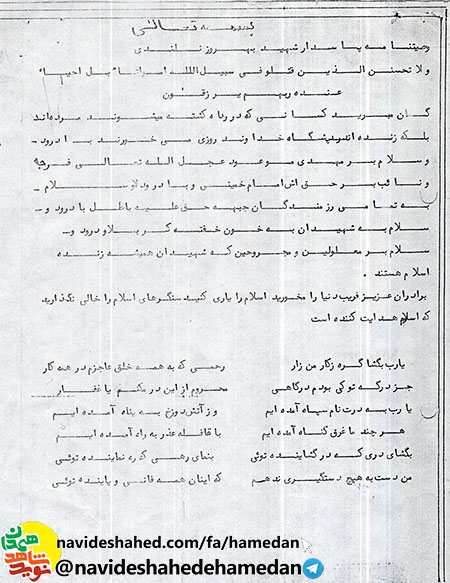 بسمه تعالی
وصیتنامه پاسدار شهید بهروز نلندی
ولا تحسبن الذین قتلو فی سبیل الله امواتا" بل احیا"
عنده ربهم یرزقون
گمان مبرید کسانی که در راه کشته میشوند مرده اند
بلکه زنده اند و پیشگاه خداوند روزی می خورند با درود -
و سلام بر مهدی موعود عجل الله تعالی فرجه
و نائب بر حق اش امام خمینی و با درود و سلام -
به تمامی رزمندگان جبهه حق علیه باطل با درود و -
سلام به شهیدان به خون خفته کربلا و درود و -
سلام بر معلولین و مجروحین که شهیدان همیشه زنده
اسلام هستند .
برادران عزیز فریب دنیا را مخورید اسلام را یاری کنید سنگرهای اسلام را خالی نگذارید
که اسلام هدایت کننده است
یارب بگشا گره ز کار من زار رحمی که به همه خلق عاجزم در همه کار
جز درگه تو کی بودم درگاهی محروم از این در مکنم یا غفار
یارب به درت نامه سیاه آمده ایم وز آتش دوزخ به پناه آمده ایم
هر چند ما غرق گناه آمده ایم با قافله عذر به راه آمده ایم
بگشای دری که در گشاینده توئی بنمای رهی که ره نماینده توئی
من دست به هیچ دستگیری ندهم که اینان همه فانی و پاینده توئی
navideshahed.com/fa/hamedan
@navideshahedehamedan
نوید شاهد همدان